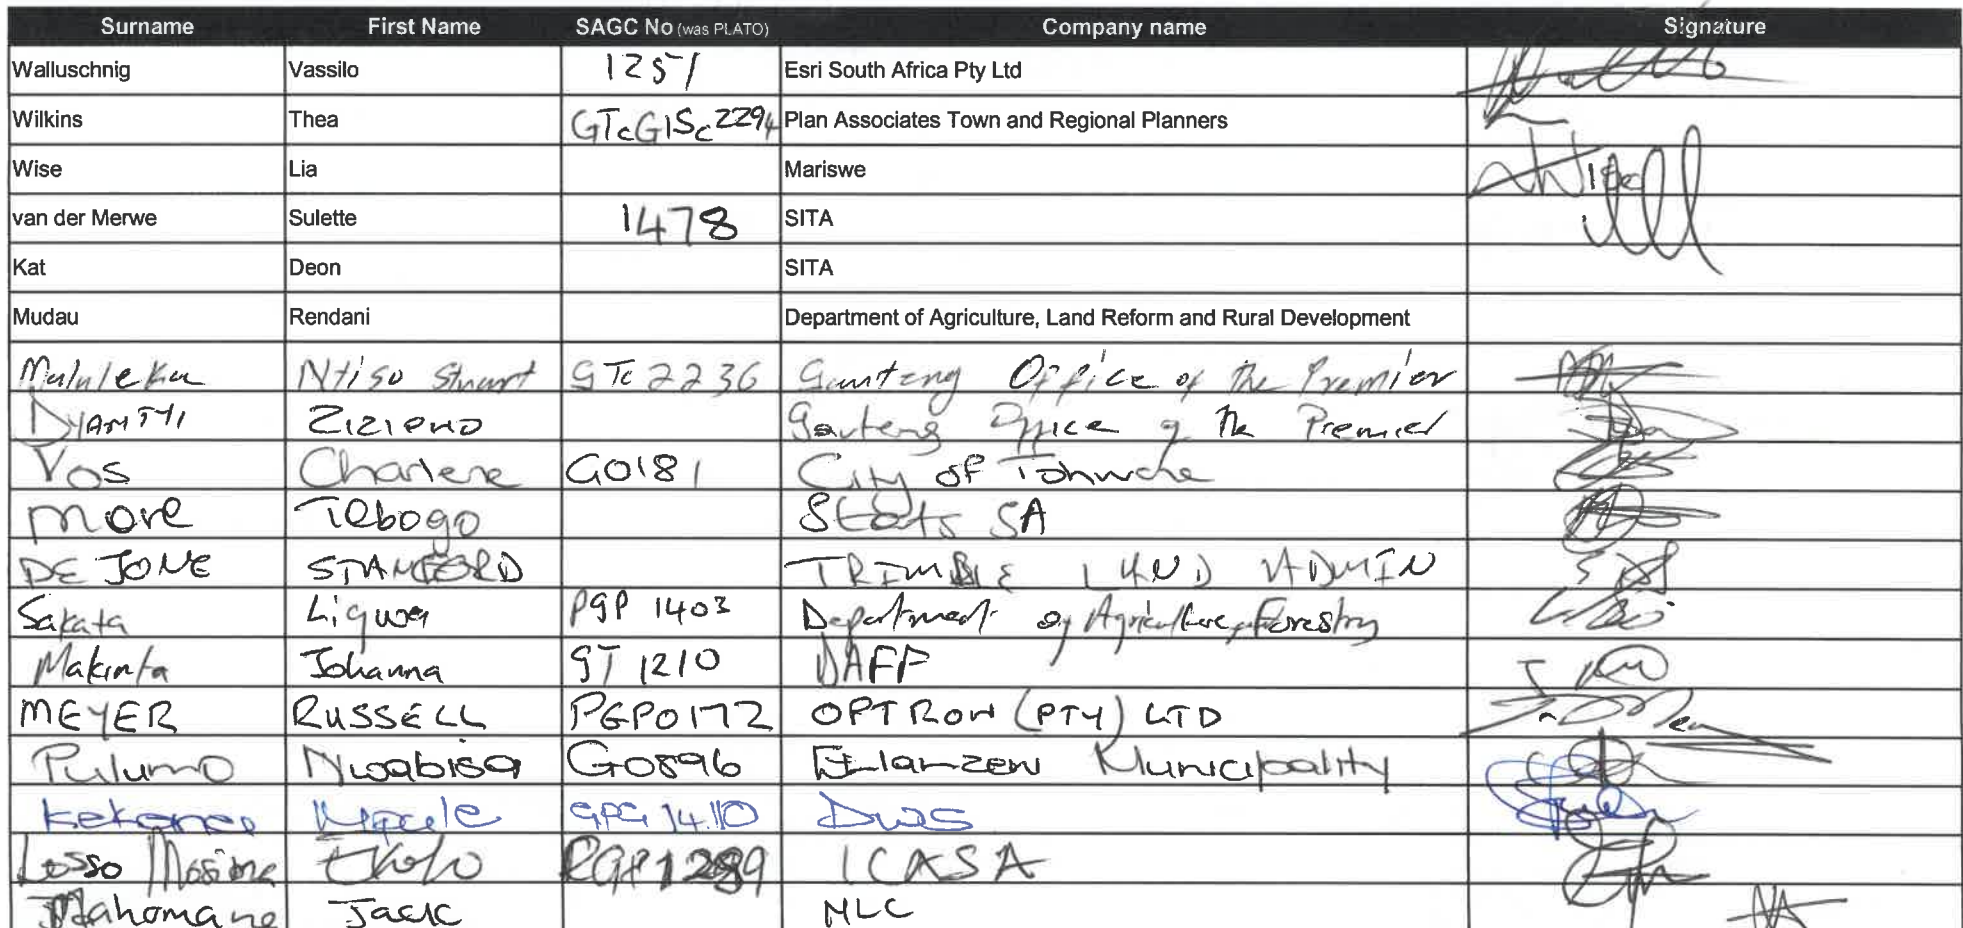 Surname First Name SAGC No (was PLATO) Company name Signature
Walluschnig Vassilo 1257 Esri South Africa Pty Ltd
Wilkins Thea GTcGISc2294 Plan Associates Town and Regional Planners
Wise Lia Mariswe
van der Merwe Sulette 1478 SITA
Kat Deon SITA
Mudau Rendani Department of Agriculture, Land Reform and Rural Development
Maluleka Ntiso Stuart GTc 2236 Gauteng Office of the Premier
DYANTYI Gauteng Office of the Premier
Vos Charlene G0181 City of Tshwane
More Tebogo Stats SA
DE JONE STANFORD TRIMBLE LAND ADMIN
Sakata Liqwa PGP 1403 Department of Agriculture, Forestry
Makinta Johanna GT 1210 DAFF
MEYER RUSSELL PGP0172 OPTRON (PTY) LTD
Pulumo Nwabisa G0896 Ehlanzeni Municipality
Kekana DWS
Losso ICASA
Mahomane Jack MLC